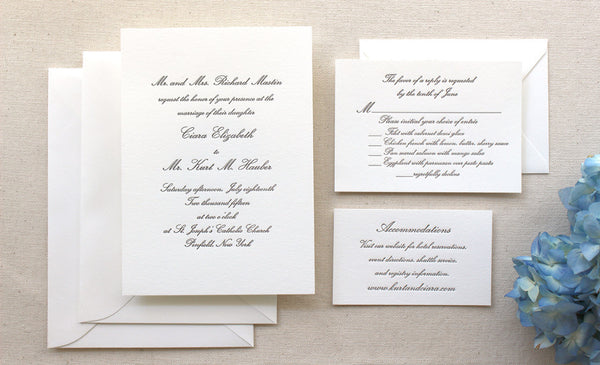 Mr. and Mrs. Richard Mastin
request the honor of your presence at the
marriage of their daughter
Ciara Elizabeth
to
Mr. Kurt M. Hauber
Saturday afternoon, July eighteenth
Two thousand fifteen
at two o'clock
at St. Joseph's Catholic Church
Penfield, New York
The favor of a reply is requested
by the tenth of June
M
Please initial your choice of entrée
Filet with cabernet demi glace
Chicken french with lemon, butter, sherry sauce
Pan seared salmon with mango salsa
Eggplant with parmesan over pesto pasta
regretfully decline
Accommodations
Visit our website for hotel reservations,
event directions, shuttle service,
and registry information.
www.kurtandciara.com